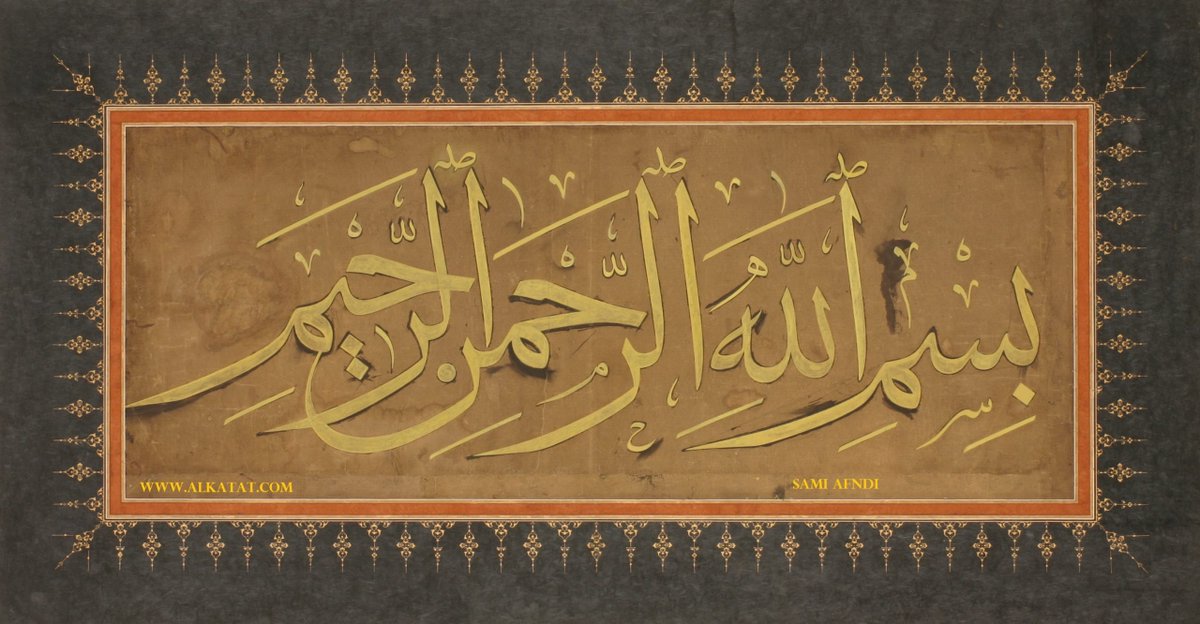 بِسْمِ اللَّهِ الرَّحْمَنِ الرَّحِيمِ
WWW.ALKATAT.COM
SAMI AFNDI